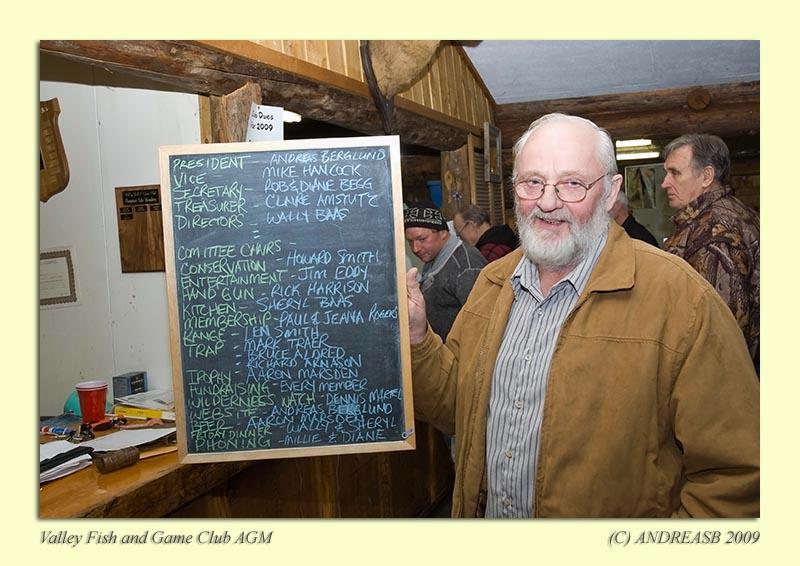 Dues
2009
PRESIDENT - ANDREAS BERGLUND
VICE MIKE HANCOCK
SECRETARY - ROB & DIANE BEGG
TREASURER - CLARKE AMSTUTZ
DIRECTORS - WALLY BAAS
COMITTEE CHAIRS -
CONSERVATION - HOWARD SMITH
ENTERTAINMENT - JIM EDDY
HAND GUN - RICK HARRISON
KITCHEN - SHERYL BAAS
MEMBERSHIP - PAUL & JEANA ROGERS
RANGE - LEN SMITH
TRAP - MARK TRAER
- BRUCE ALDRED
- RICHARD ARNASON
TROPHY - AARON MARSDEN
FUNDRAISING - EVERY MEMBER
WILDERNESS WATCH - DENNIS MARTEL
WEBSITE - ANDREAS BERGLUND
BEER - AARON MARSDEN
DINNER - WALLY & CHERYL
PHONING - MILLIE & DIANE
Valley Fish and Game Club AGM
(C) ANDREASB 2009